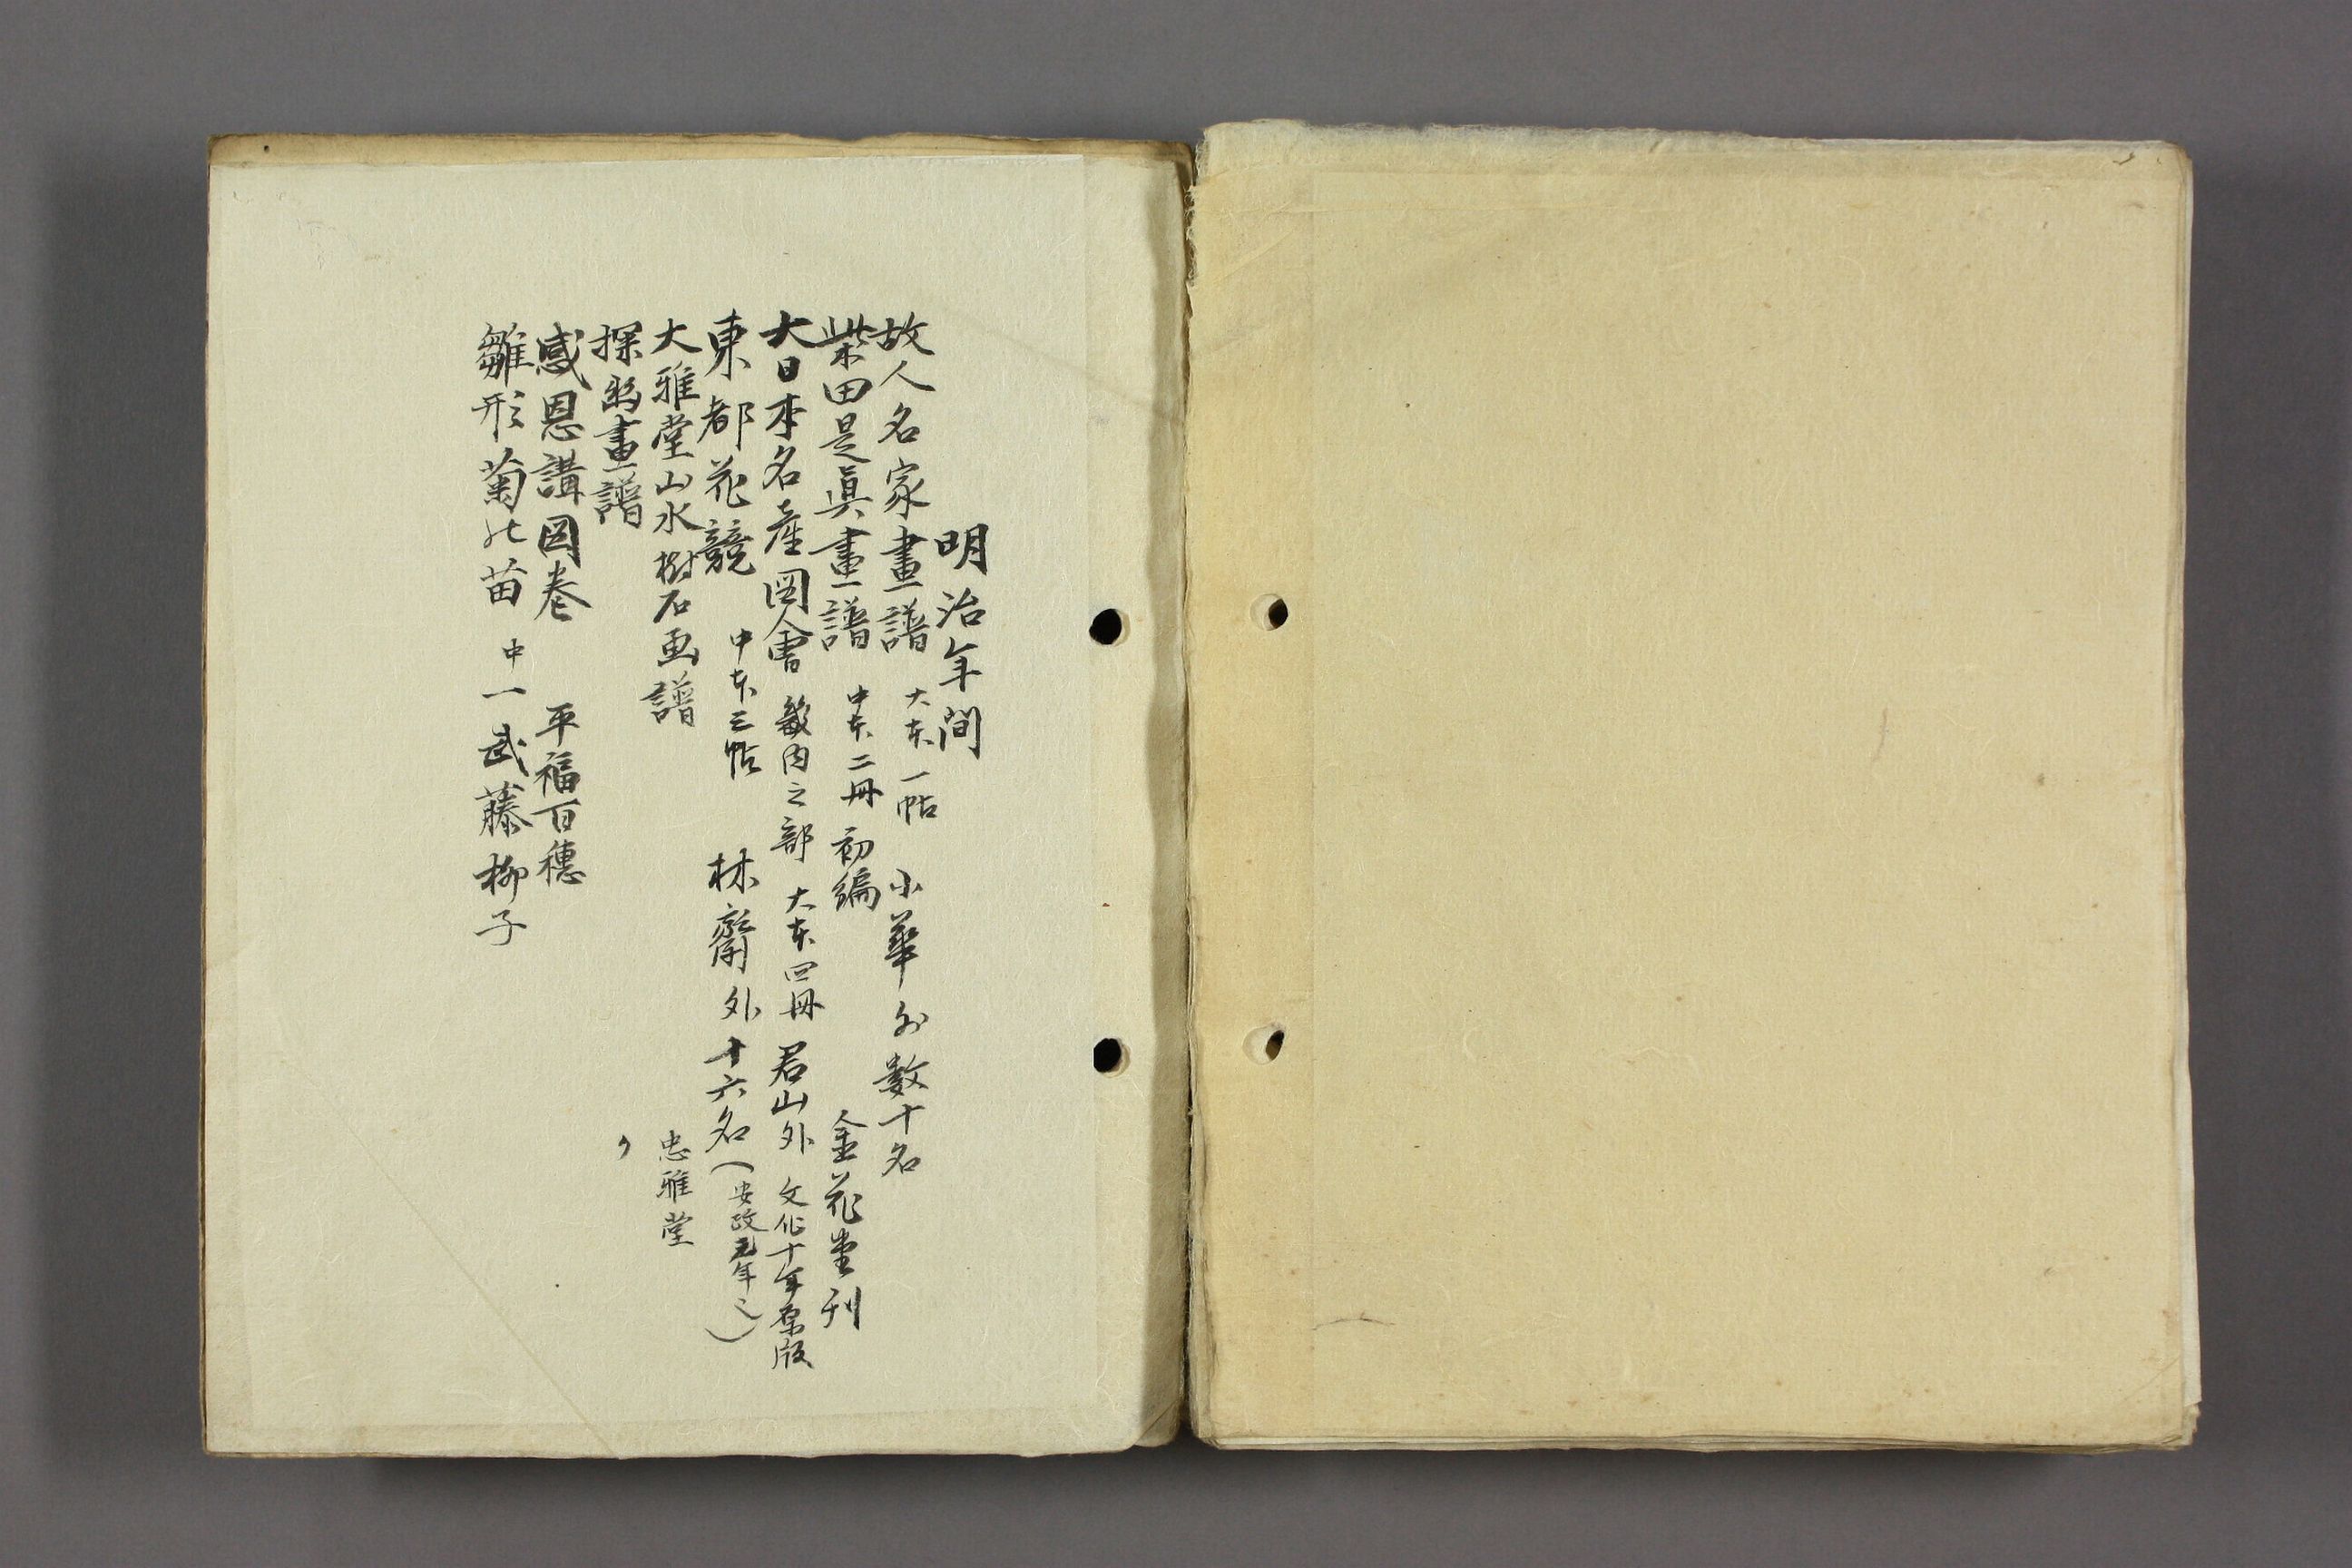 明治年間
故人名家畫譜 大本一帖 小華外数十名
柴田是眞畫譜 中本二冊 初編 金花堂刊
大日本名産図會 畿内之部 大本四冊 君山外 文化十年原版
東都花競 中本三帖 林齋外十六名(安政元年之)
大雅堂山水樹石画譜 忠雅堂
探幽畫譜 〃
感恩講図巻 平福百穂
雛形菊の苗 中一 武藤柳子